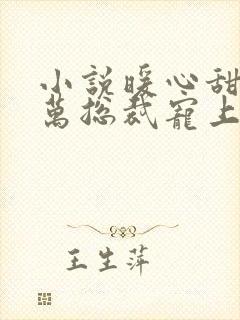 小説暖心甜
萬總裁寵上
王生萍